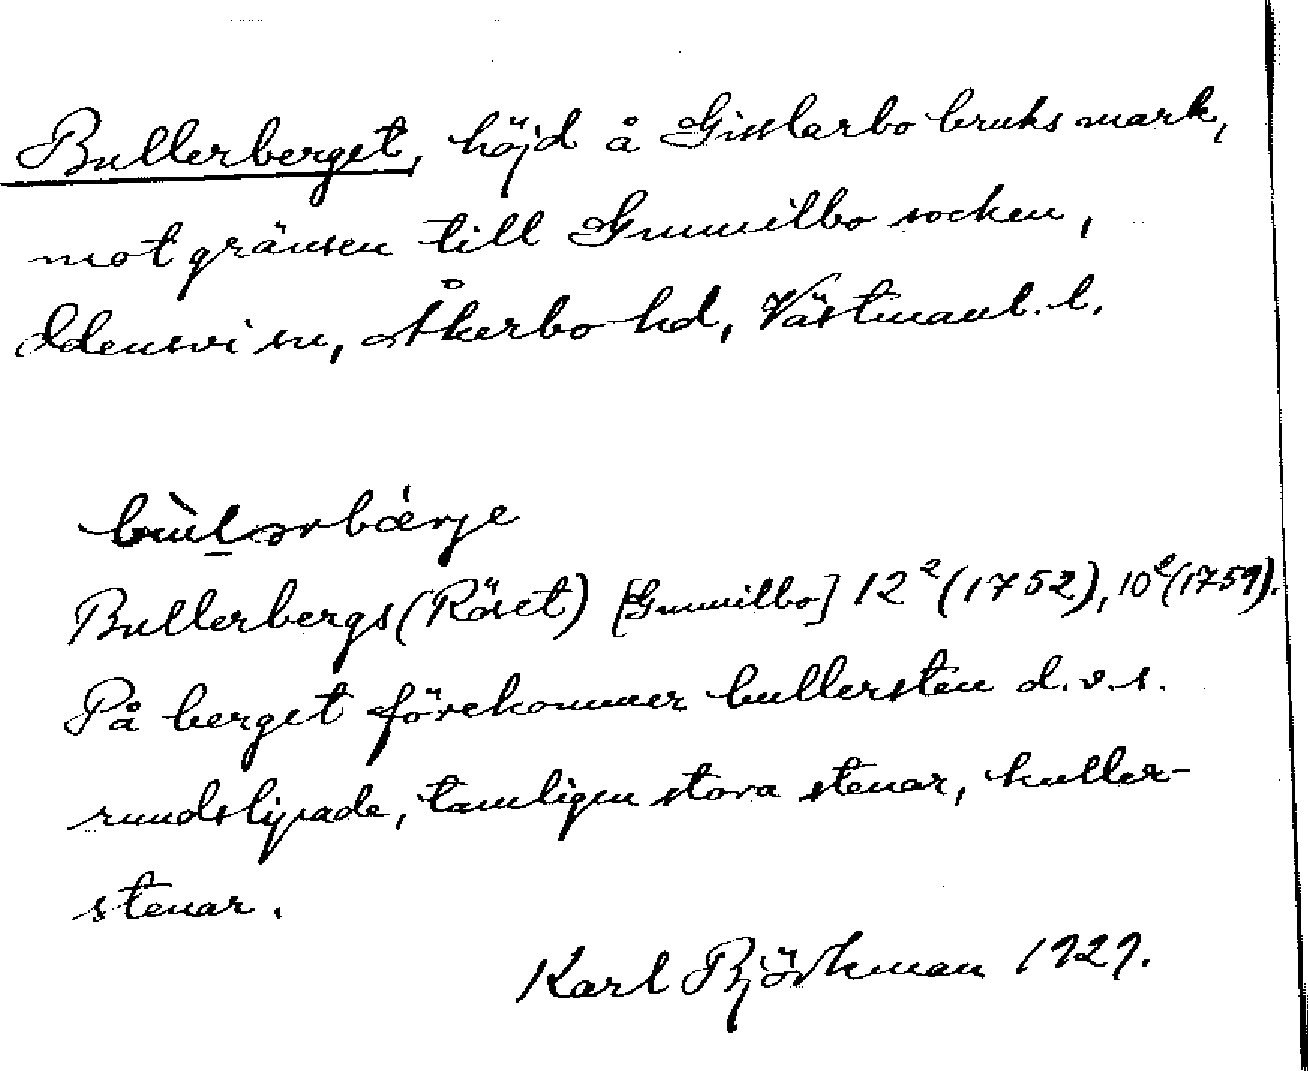 Bullerberget, höjd å Gisslarbo bruks mark,
mot gränsen till Gunnilbo socken,
Odensvi sn, Åkerbo hd, Västmanl. l.
Bullerbergs (Röset) [Gunnilbo] 12² (1752), 10² (1759).
På berget förekommer bullersten d.v.s.
rundslipade, tämligen stora stenar, kuller-
stenar.
Karl Björkman 1929.